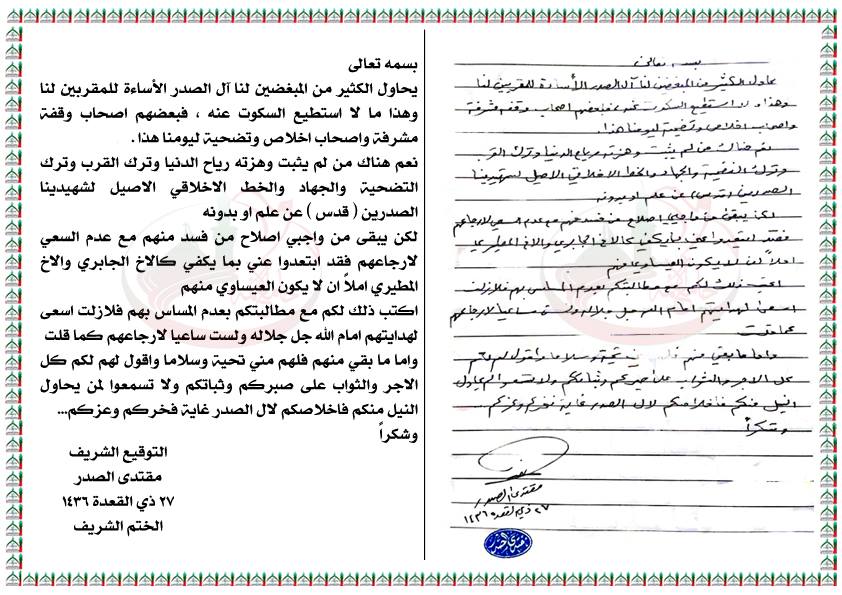 بسمه تعالى
يحاول الكثير من المبغضين لنا آل الصدر الأساءة للمقربين لنا
وهذا ما لا استطيع السكوت عنه ، فبعضهم اصحاب وقفة مشرفة
واصحاب اخلاص وتضحية ليومنا هذا .
نعم هناك من لم يثبت وهزته رياح الدنيا وترك القرب
وترك التضحية والجهاد والخط الاخلاقي الاصيل لشهيدينا
الصدرين (قدس) عن علم او بدونه
لكن يبقى من واجبي اصلاح من فسد منهم مع عدم السعي لارجاعهم
فقد ابتعدوا عني بما يكفي كالاخ الجابري والاخ المطيري
املاً ان لا يكون العيساوي منهم
اكتب ذلك لكم مع مطالبتكم بعدم المساس بهم فلازلت
اسعى لهدايتهم امام الله جل جلاله ولست ساعيا لارجاعهم
كما قلت
واما ما بقي منهم فلهم مني تحية وسلاما واقول لهم لكم
كل الاجر والثواب على صبركم وثباتكم ولا تسمعوا لمن يحاول
النيل منكم فاخلاصكم لال الصدر غاية فخركم وعزكم
وشكراً
مقتدى الصدر
٢٧ ذي القعدة ١٤٣٦
بسمه تعالى
يحاول الكثير من المبغضين لنا آل الصدر الأساءة للمقربين لنا
وهذا ما لا استطيع السكوت عنه ، فبعضهم اصحاب وقفة
مشرفة واصحاب اخلاص وتضحية ليومنا هذا .
نعم هناك من لم يثبت وهزته رياح الدنيا وترك القرب وترك
التضحية والجهاد والخط الاخلاقي الاصيل لشهيدينا
الصدرين ( قدس ) عن علم او بدونه
لكن يبقى من واجبي اصلاح من فسد منهم مع عدم السعي
لارجاعهم فقد ابتعدوا عني بما يكفي كالاخ الجابري والاخ
المطيري املاً ان لا يكون العيساوي منهم
اكتب ذلك لكم مع مطالبتكم بعدم المساس بهم فلازلت اسعى
لهدايتهم امام الله جل جلاله ولست ساعيا لارجاعهم كما قلت
واما ما بقي منهم فلهم مني تحية وسلاما واقول لهم لكم كل
الاجر والثواب على صبركم وثباتكم ولا تسمعوا لمن يحاول
النيل منكم فاخلاصكم لال الصدر غاية فخركم وعزكم...
وشكراً
التوقيع الشريف
مقتدى الصدر
٢٧ ذي القعدة ١٤٣٦
الختم الشريف